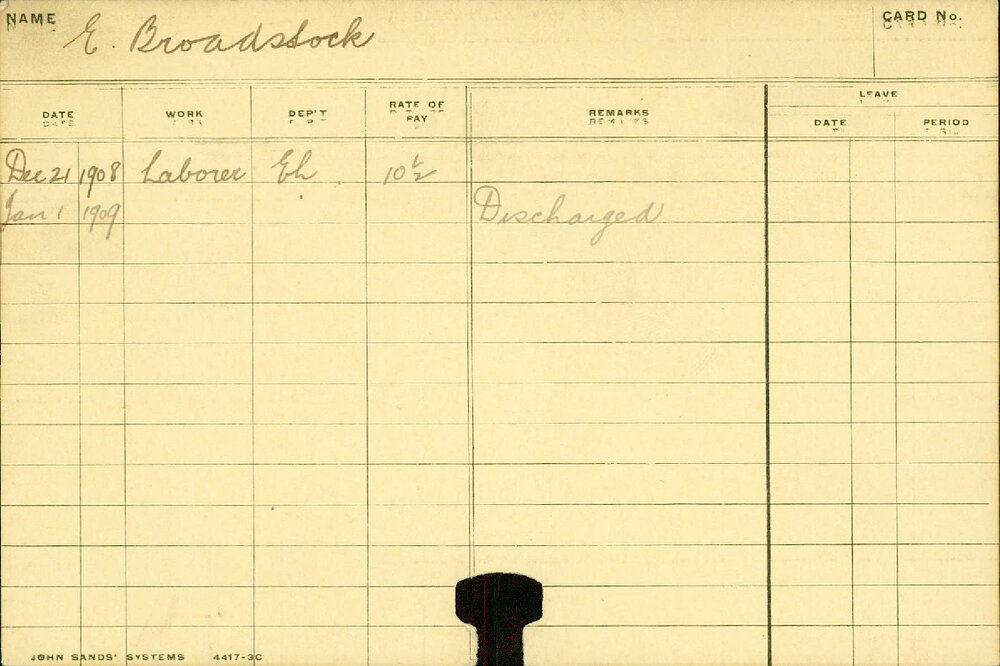 NAME E. Broadstock CARD No.
LEAVE
DATE WORK DEP'T RATE OF PAY REMARKS DATE PERIOD
Dec 21 1908 Laborer Eh 10½
Jan 1 1909 Discharged
JOHN SANDS' SYSTEMS 4417-3C